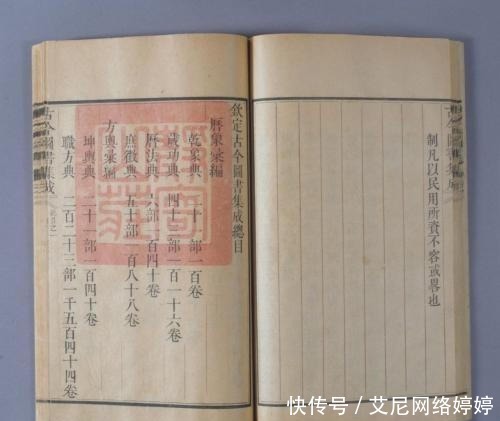 古今圖書集成
制凡以民用所資不容或畧也
欽定古今圖書集成總目
曆象彙編
乾象典 二十一部一百卷
歲功典 四十三部一百一十六卷
曆法典 六部一百四十卷
庶徵典 五十部一百八十八卷
方輿彙編
坤輿典 二十一部一百四十卷
職方典 二百二十三部一千五百四十四卷
古今圖書集成
快传号 / 艾尼网络婷婷